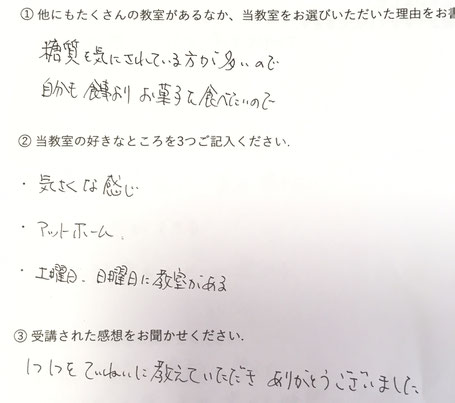 ① 他にもたくさんの教室があるなか、当教室をお選びいただいた理由をお書
糖質を気にされている方が多いので
自分も食事よりお菓子を食べたいので
② 当教室の好きなところを3つご記入ください.
・気さくな感じ
・アットホーム。
・土曜日、日曜日に教室がある
③ 受講された感想をお聞かせください.
1つ1つをていねいに教えていただき ありがとうございました